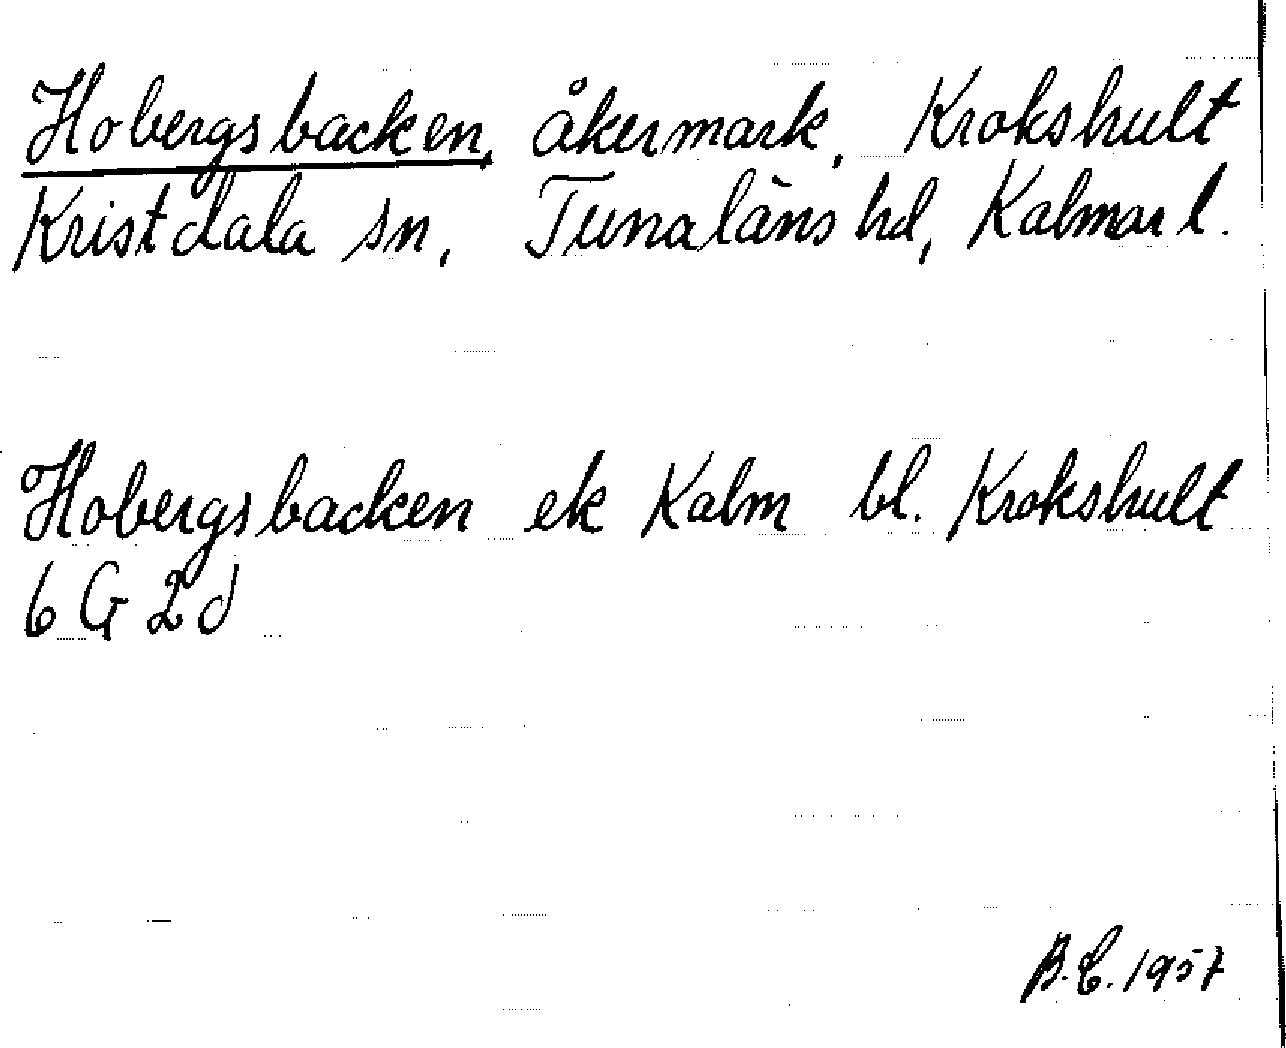 Hobergsbacken, åkermark, Krokshult
Kristdala sn, Tunaläns hd, Kalmar l.
Hobergsbacken ek Kalm bl. Krokshult
6 G 2 d
B.E. 1957